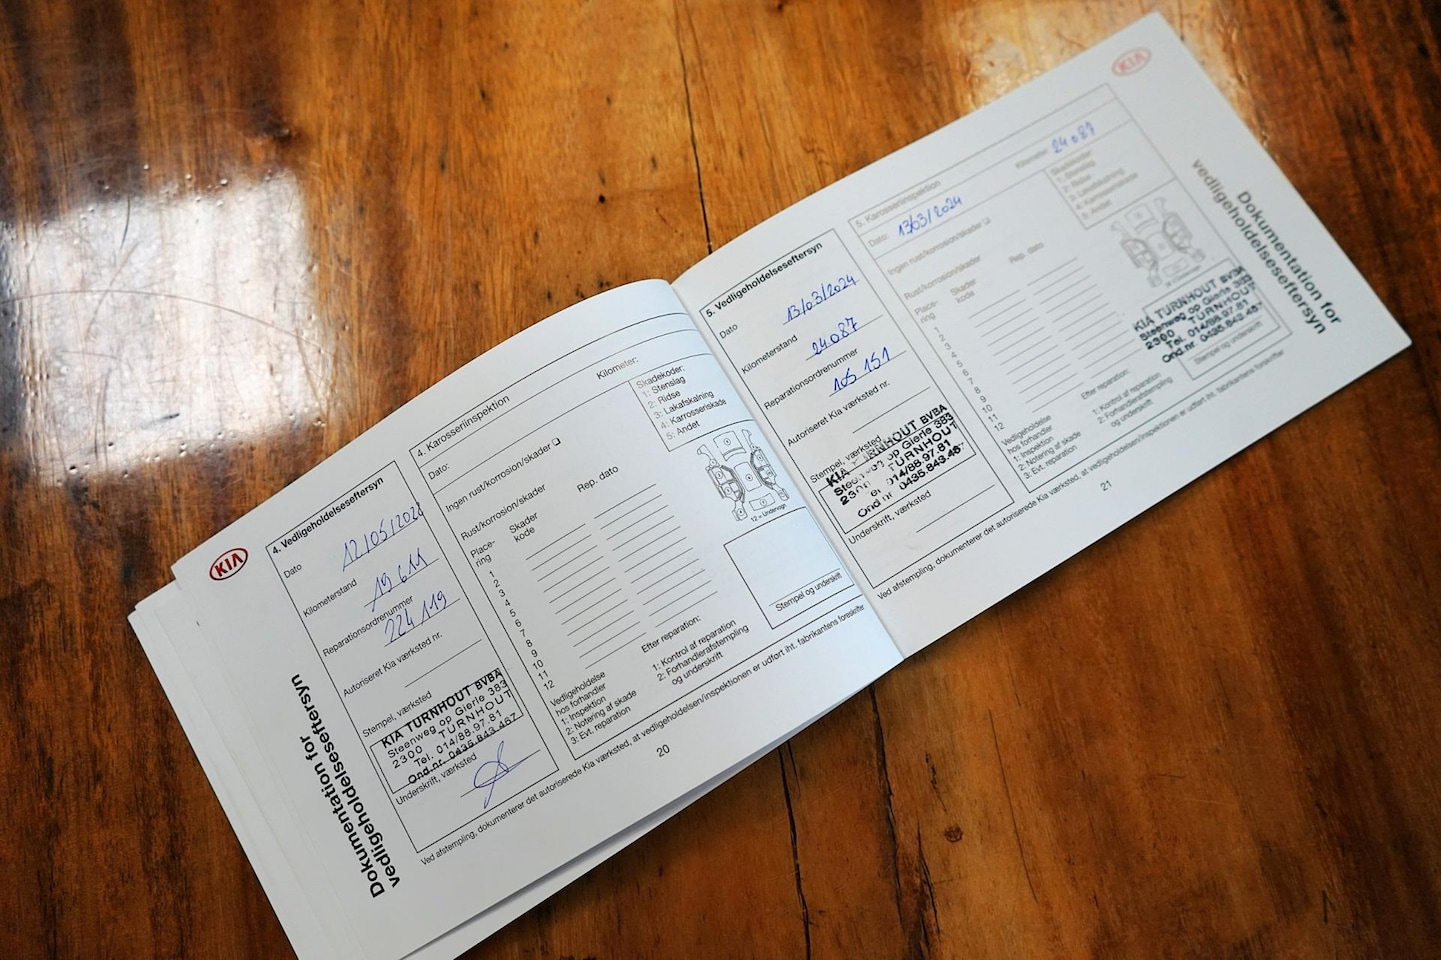 KIA
Dokumentation for
vedligeholdelseseftersyn
4. Vedligeholdelseseftersyn
Dato
12/05/202
Kilometerstand
19 611
Reparationsordrenummer
224 119
Autoriseret Kia værksted nr.
Stempel, værksted
KIA TURNHOUT BVBA
Steenweg op Gierle 383
2300 TURNHOUT
Tel. 014/88.97.81
Ond.nr. 0435.843.467
Underskrift, værksted
4. Karosseriinspektion
Dato:
Kilometer:
Ingen rust/korrosion/skader
Rust/korrosion/skader
Place-
ring
Skader
kode
Rep. dato
1
2
3
4
5
6
7
8
9
10
11
12
Skadekoder:
1: Stenslag
2: Ridse
3: Lakafskalning
4: Karosseriskade
5: Andet
12 = Undervogn
Stempel og underskrift
Vedligeholdelse
hos forhandler
1: Inspektion
2: Notering af skade
3: Evt. reparation
Efter reparation:
1: Kontrol af reparation
2: Forhandlerafstempling
og underskrift
Ved afstempling, dokumenterer det autoriserede Kia værksted, at vedligeholdelsen/inspektionen er udført iht. fabrikantens forskrifter
20
5. Vedligeholdelseseftersyn
Dato
13/03/2024
Kilometerstand
24087
Reparationsordrenummer
105 151
Autoriseret Kia værksted nr.
Stempel, værksted
KIA TURNHOUT BVBA
Steenweg op Gierle 383
2300 TURNHOUT
Tel. 014/88.97.81
Ond.nr. 0435.843.467
Underskrift, værksted
5. Karosseriinspektion
Dato: 13/03/2024
Kilometer: 24087
Ingen rust/korrosion/skader
Rust/korrosion/skader
Place-
ring
Skader
kode
Rep. dato
1
2
3
4
5
6
7
8
9
10
11
12
Skadekoder:
1: Stenslag
2: Ridse
3: Lakafskalning
4: Karosseriskade
5: Andet
KIA TURNHOUT BVBA
Steenweg op Gierle 383
2300 TURNHOUT
Tel. 014/88.97.81
Ond.nr. 0435.843.467
Stempel og underskrift
Vedligeholdelse
hos forhandler
1: Inspektion
2: Notering af skade
3: Evt. reparation
Efter reparation:
1: Kontrol af reparation
2: Forhandlerafstempling
og underskrift
Ved afstempling, dokumenterer det autoriserede Kia værksted, at vedligeholdelsen/inspektionen er udført iht. fabrikantens forskrifter
21
KIA
Dokumentation for
vedligeholdelseseftersyn